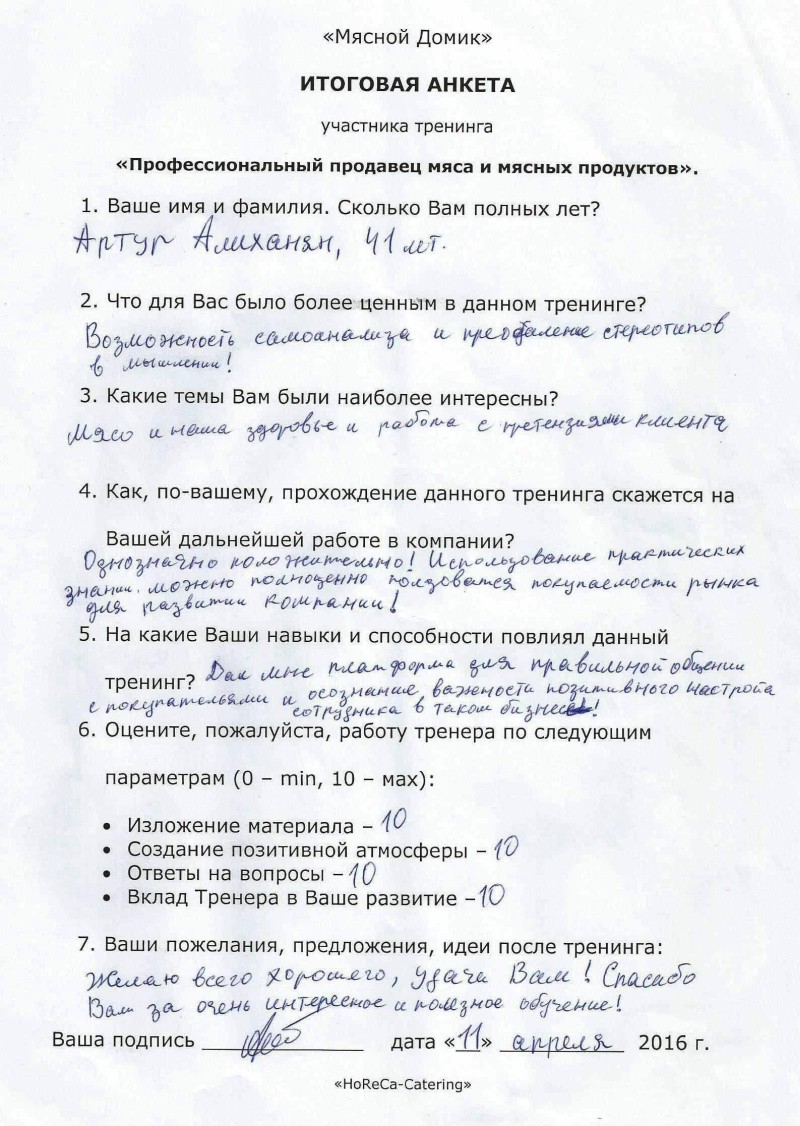 «Мясной Домик»
ИТОГОВАЯ АНКЕТА
участника тренинга
«Профессиональный продавец мяса и мясных продуктов».
1. Ваше имя и фамилия. Сколько Вам полных лет?
Артур Алиханян, 41 лет.
2. Что для Вас было более ценным в данном тренинге?
Возможность самоанализа и преодаление стереотипов
в мышлении!
3. Какие темы Вам были наиболее интересны?
Мясо и наша здоровье и работа с претензиями клиента
4. Как, по-вашему, прохождение данного тренинга скажется на
Вашей дальнейшей работе в компании?
Однозначно положительно! Использование практических
знании. можно полноценно ползоватся покупаемости рынка
для развитии компании!
5. На какие Ваши навыки и способности повлиял данный
тренинг? Дал мне платформа для правильной общении
с покупательями и осознание важности позитивного настройа
сотрудника в таком бизнесе!
6. Оцените, пожалуйста, работу тренера по следующим
параметрам (0 – min, 10 – мах):
• Изложение материала – 10
• Создание позитивной атмосферы – 10
• Ответы на вопросы – 10
• Вклад Тренера в Ваше развитие – 10
7. Ваши пожелания, предложения, идеи после тренинга:
Желаю всего хорошего, удачи Вам! Спасибо
Вам за очень интересное и полезное обучение!
Ваша подпись ______________ дата «11» апреля 2016 г.
«HoReCa-Catering»